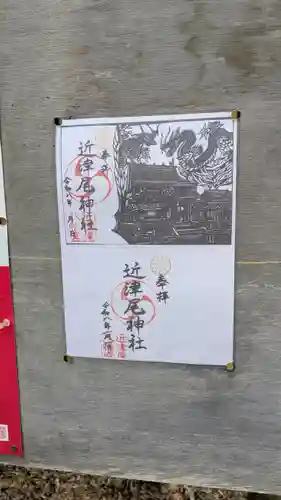 奉拝
近津尾神社
令和八年一月 日
奉拝
近津尾神社
令和八年一月